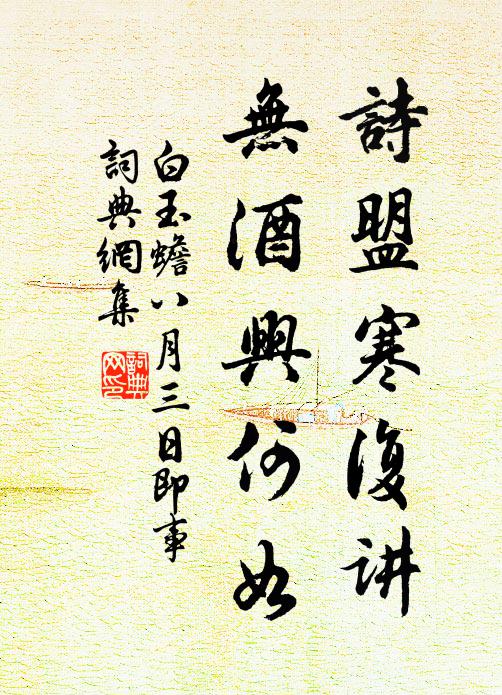 詩盟寒復讲
無酒興何如
白玉蟾八月三日即事
詞典網集
詞典网印